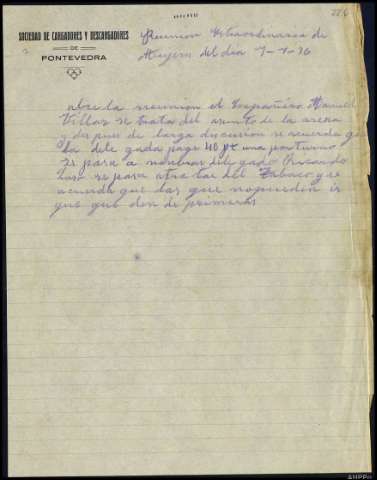 226
SOCIEDAD DE CARGADORES Y DESCARGADORES
DE
PONTEVEDRA
Reunion Estraordinaria de
Mujeres del dia 7-7-36
abre la reunion el Compañero Manuel
Villar se trata del asunto de la arena
y des pues de larga discusion se acuerda que
la dele gada page 40 pt una por turno
se pasa a nonbrar dele gado
se pasa atratar del Tabaco y se
acuerda que las que nopueden ir
que que den de primeras
AHPPo